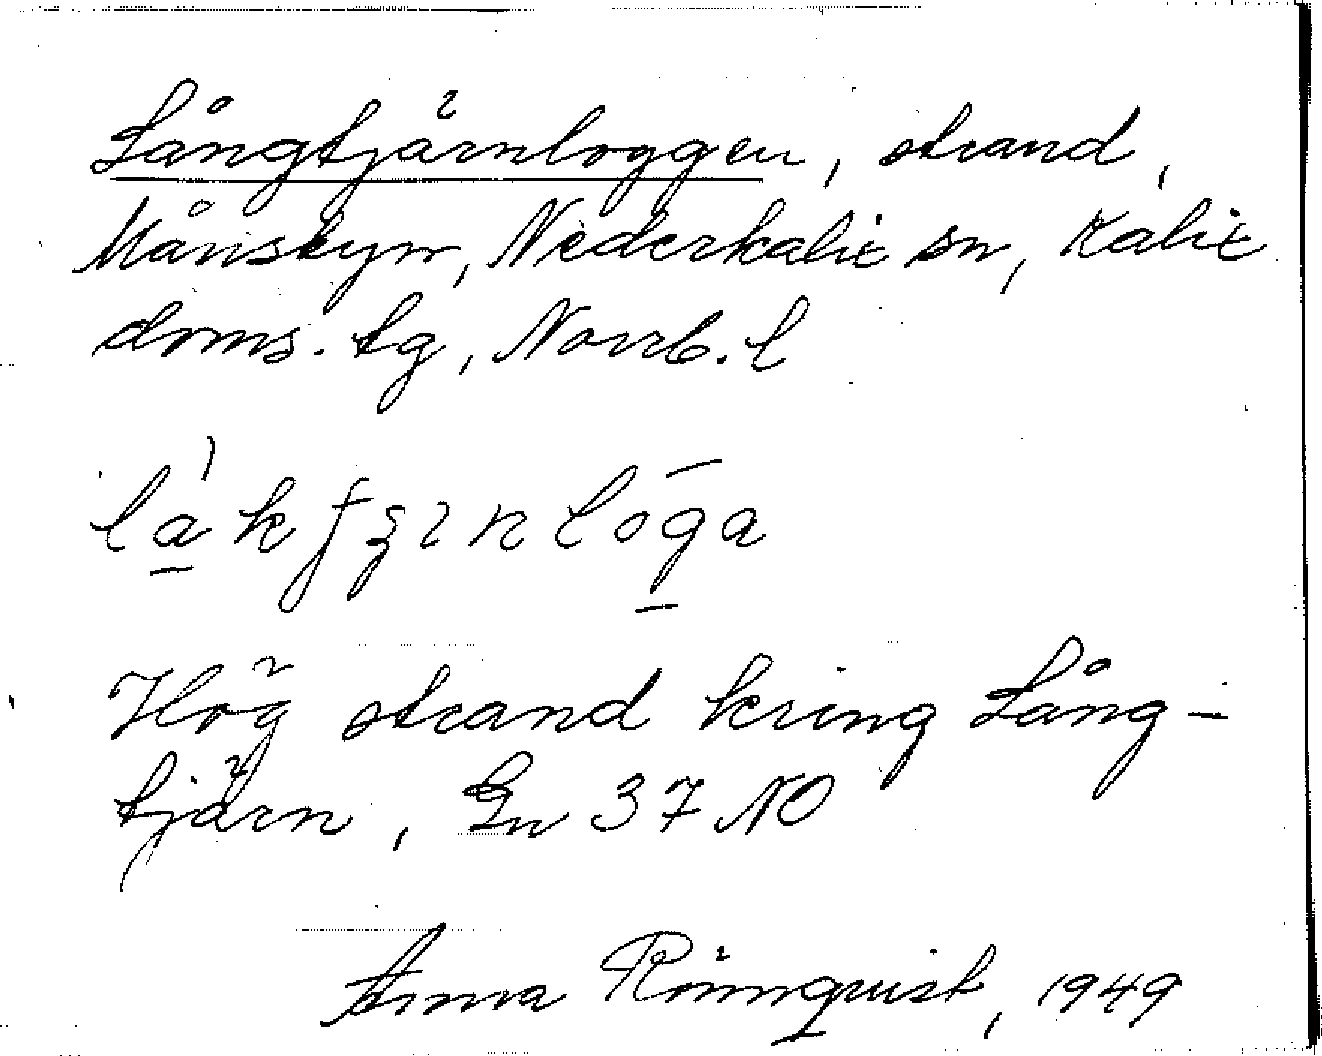 Långtjärnloggen, strand,
Månsbyn, Nederkalix sn, Kalix
doms. tg, Norrb. l
Hög strand kring Lång-
tjärn, En 37 NO
Anna Rönnqvist, 1949